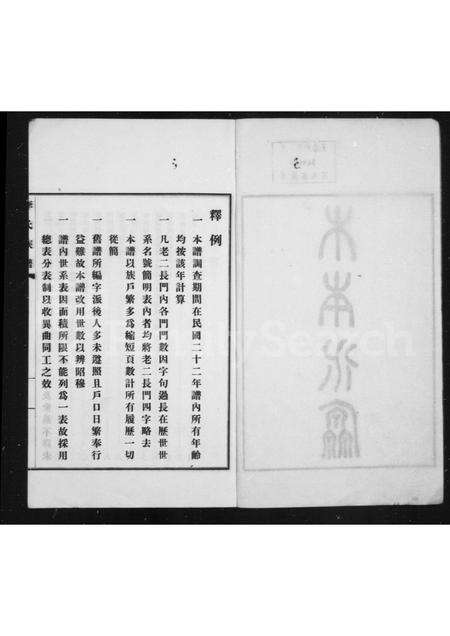 木本水源
釋例
一 本譜調查期間在民國二十二年譜內所有年齡
均按該年計算
一 凡老二長門內各門門數因字句過長在歷世世
系名號簡明表內者均將老二長門四字略去
一 本譜以族戶繁多為縮短頁數計所有履歷一切
從簡
一 舊譜所編字派後人多未遵照且戶口日繁奉行
益難故本譜改用世數以辨昭穆
一 譜內世系表因面積所限不能列爲一表故採用
總表分表制以收異曲同工之效
氏族譜
一